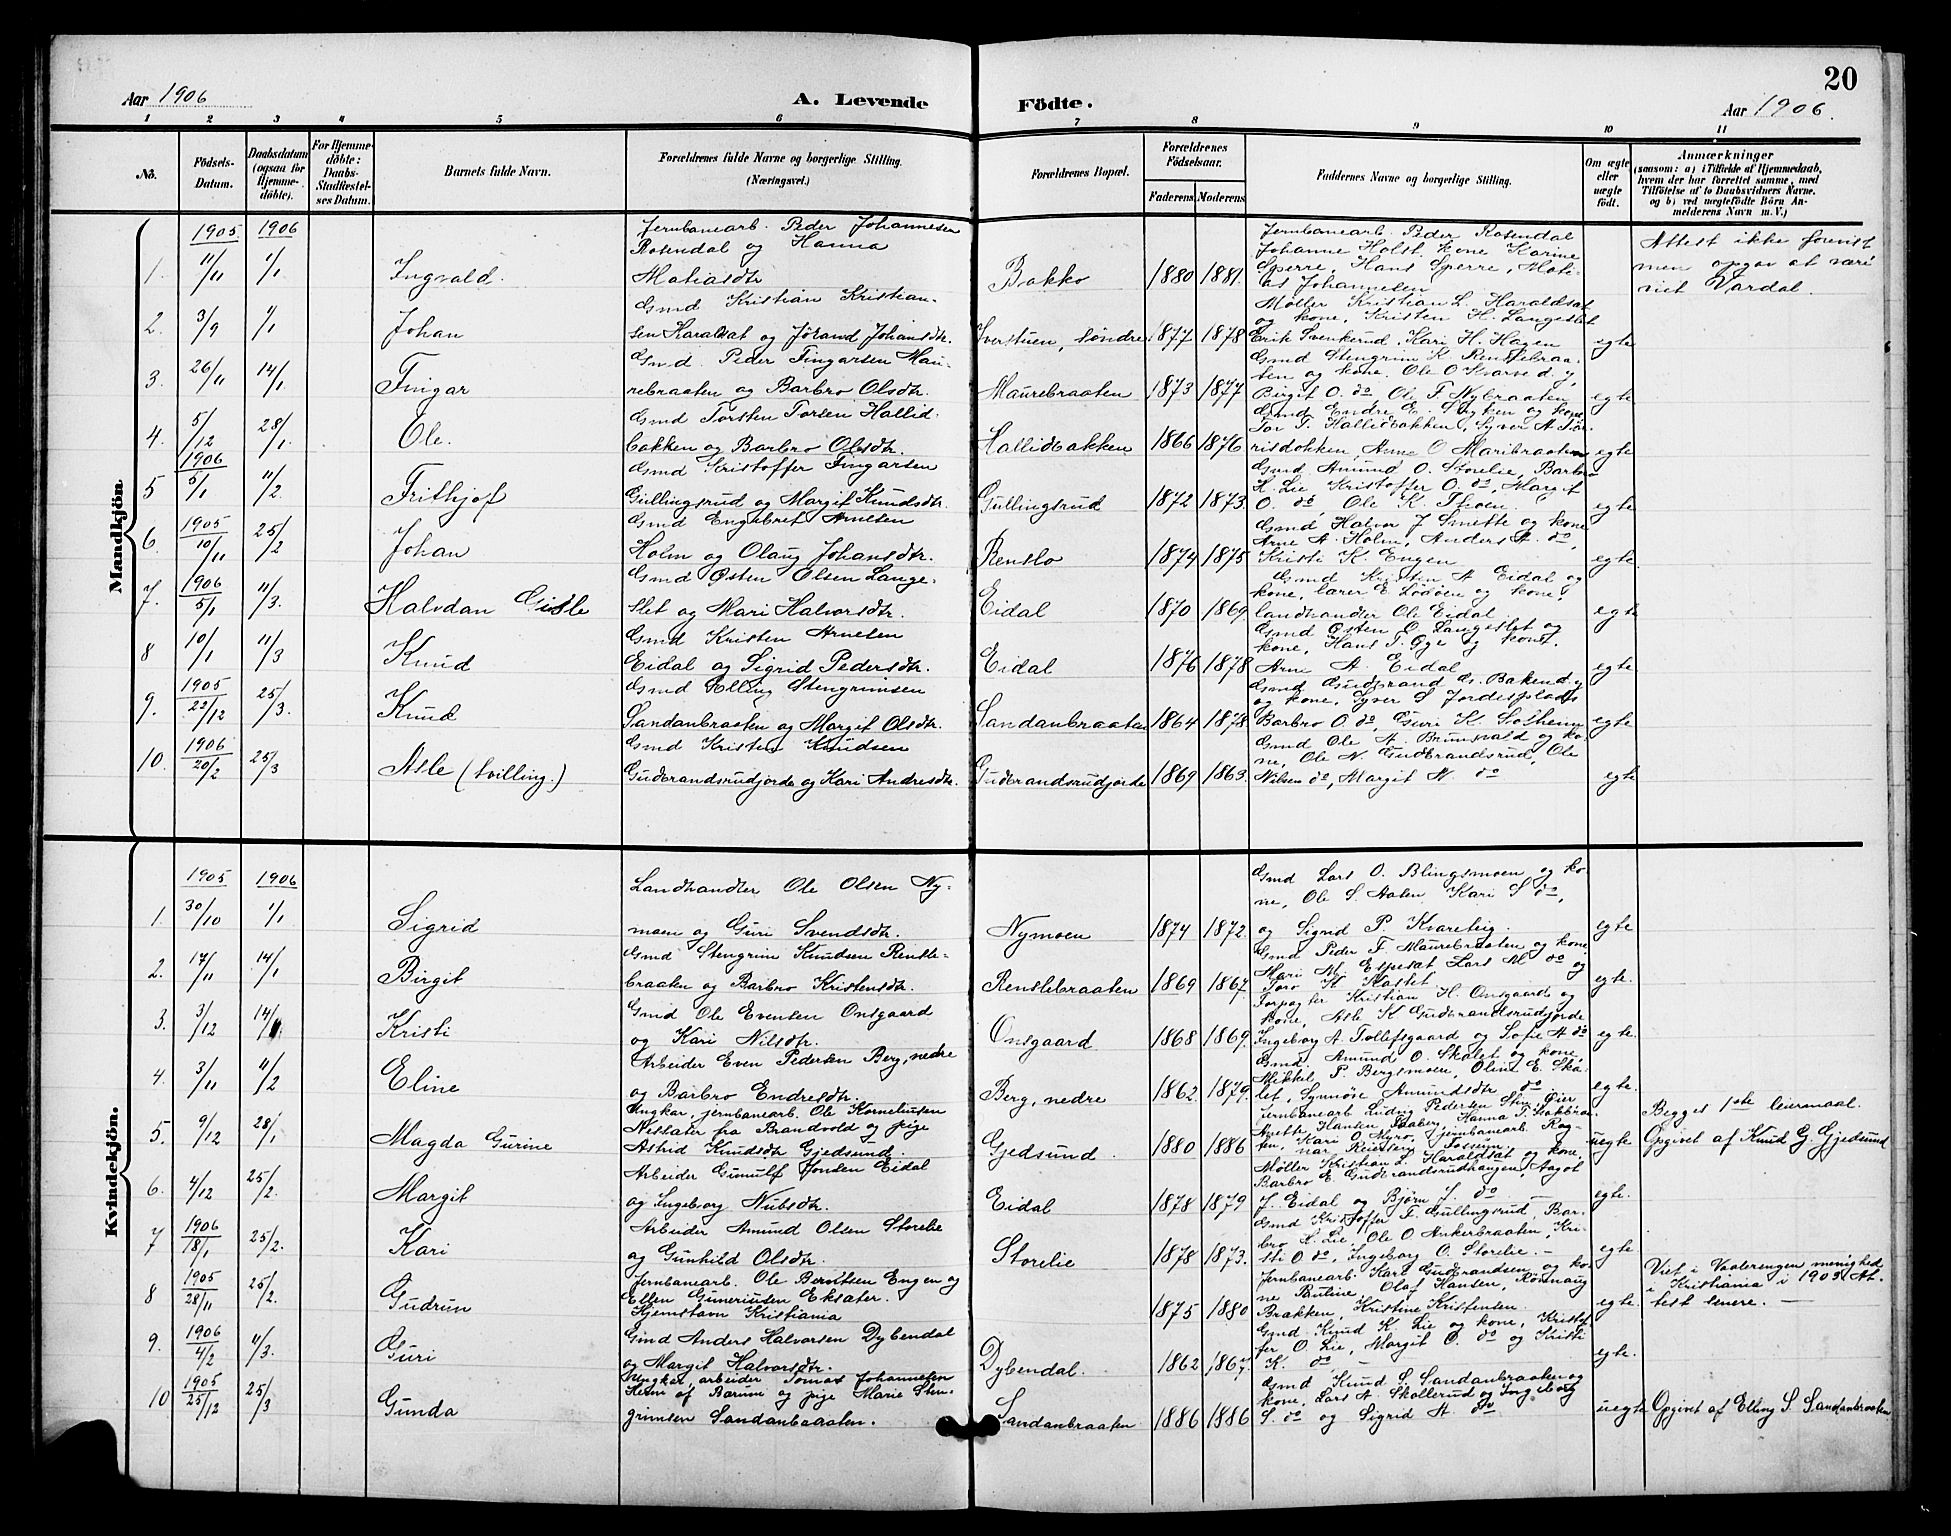 20
Aar 1906
A. Levende Födte.
Aar 1906.
1 2 3 4 5 6 7 8 9 10 11
No.
Födsels-Datum.
Daabsdatum (ogsaa for Hjemme-döbte).
For Hjemme-döbte: Daabs-Stadfæstel-ses Datum.
Barnets fulde Navn.
Forældrenes fulde Navne og borgerlige Stilling.
(Næringsvei.)
Forældrenes Bopæl.
Forældrenes Födselsaar.
Faderens
Moderens
Faddernes Navne og borgerlige Stilling.
Om ægte eller uægte födt.
Anmærkninger
(saasom: a) i Tilfælde af Hjemmedaab,
hvem der har forrettet samme, med
Tilföielse af to Daabsvidners Navne,
og b) ved uægtefödte Börn An-
melderens Navn m. V.)
Mandkjön
1905 1906
1. 11/11 1/1 Ingvald. Jernbanearb. Peder Johannesen
Rosendal og Hanna
Matiasdtr. Bakko 1880 1881. Jernbanearb. Peder Rosendal
Johanne Holst, kone Karine
Sperre, Hans Sperre, Mati-
as Johannesen
Attest ikke forevist
men opgav at være
viet Vardal.
2. 3/9 1/1 Johan Gmd Kristian Kristian-
sen Haraldsat og Jørand Johansdtr. Sverstuen, søndre 1877 1878 Møller Kristian L. Haraldsat
og kone, Kristen H. Langeslet
Erik Svenkerud, Kari H. Hagen egte
3. 26/11 14/1 Fingar Gmd. Peder Fingarsen Mau-
rebraaten og Barbro Olsdtr. Maurebraaten 1873 1877 Gmd Stengrim K. Renslebraa-
ten og kone, Ole O Kvarve d. y,
Birgit O. do, Ole F. Nybraaten egte
4. 5/12 28/1 Ole. Gmd Torsten Torsen Hallid-
bakken og Barbro Olsdtr. Hallidbakken 1866 1876 Gmd Endre E. og kone
Tor T. Hallidbakken, Syver A
Anne O Maribraaten egte
1906
5 5/1 11/2. Frithjof Gmd Kristoffer Fingarsen
Gullingsrud og Margit Knudsdtr. Gullingsrud 1872 1873. Gmd Amund O. Storelie, Barbro
H. Lie Kristoffer O. do, Margit
O. do, Ole K. Thoen. egte
1905
6. 10/11 25/2 Johan Gmd Engebret Arnesen
Holm og Olaug Johansdtr. Renslo 1874 1875 Gmd Halvor J Smette og kone
Arne A. Holm, Anders A. do,
Kristi K. Engen egte.
1906
7. 5/1 11/3. Halvdan Gisle Gmd Østen Olsen Lange-
slet og Mari Halvorsdtr. Eidal 1870 1869 Gmd Kristen A Eidal og
kone, lærer E. Lødøen og kone,
landhandler Ole Eidal egte
8 10/1 11/3 Knud Gmd Kristen Arnesen
Eidal og Sigrid Pedersdtr. Eidal 1876 1878 Gmd Østen O. Langeslet og
kone, Hans T. Gge og kone.
Arne A. Eidal egte
1905
9. 22/12 25/3. Knud Gmd Elling Stengrimsen
Sandanbraaten og Margit Olsdtr. Sandanbraaten 1864 1878 Gmd Gudbrand G. Bakend.
og kone, Syver S Jordesplads
Barbro O do, Guri K. Solheim egte
1906
10. 20/2 25/3 Asle (tvilling.) Gmd Kristen Knudsen
Gudbrandsrudjorde og Kari Andresdtr. Gudbrandsrudjorde 1869 1863. Gmd Ole A. Brunvald og ko-
ne, Ole N. Gudbrandsrud, Ole
Nilsen do, Margit N. do egte
Kvindekjön.
1905 1906
1. 30/10 1/1 Sigrid Landhandler Ole Olsen Ny-
moen og Guri Svendsdtr. Nymoen 1874 1872. Gmd Lars O. Blingsmoen og ko-
ne, Ole S. Aasen, Kari S do,
og Sigrid P. Kvarteig. egte
2. 17/11 14/1 Birgit Gmd Stengrim Knudsen Rensle-
braaten og Barbro Kristensdtr. Renslebraaten 1869 1867 Gmd Peder F. Maurebraaten og kone
Mari M. Espeset Lars M do og
Toro K. Kastet. egte.
3. 3/12 14/1 Kristi Gmd Ole Evensen Onsgaard
og Kari Nilsdtr. Onsgaard 1868 1869. Forpagter Kristian H. Onsgaard og
kone, Asle K Gudbrandsrudjorde
Ingeborg A. Tollefsgaard og Sofie A do egte.
4. 3/11 11/2 Eline Arbeider Even Pedersen Berg, nedre
og Barbro Endresdtr. Berg, nedre 1862 1879. Gmd. Amund O. Skalet og kone,
Mikkel P. Bergsmoen, Oline E. Ska-
let, Synnøve Amundsdtr do egte.
5. 9/12 28/1 Magda Gurine Ungkar, jernbanearb. Ole Kornelinsen
Nestater fra Brandvold og pige
Astrid Knudsdtr Gjedsund. Gjedsund. 1880 1886 Jernbanearb Ludvig Pedersen
Anette Hansen Hanna
Kari O. Myro, jernbanearb. Rag-
nar uegte Begges 1ste leiermaal.
Opgivet af Knud G. Gjedsund
6. 4/12 25/2. Margit Arbeider Gunulf Jonsen Eidal
og Ingeborg Nubsdtr. Eidal 1878 1879 Møller Kristian L. Haraldsat og kone,
Barbro E. Gudbrandsrudhaugen, Aagot
J. Eidal og Bjørn J. do — egte.
1906
7 18/1 25/2. Kari Arbeider Amund Olsen Storelie
og Gunhild Olsdtr. Storelie 1878 1873. Gmd Kristoffer F. Gullingsrud, Bar-
bro H. Lie, Ole O Ankerbraaten, Kri-
sti O do, Ingeborg O. Storelie. — egte.
1905
8 28/11 25/2. Gudrun Jernbanearb. Ole Berntsen Engen og
Ellen Gunerinsen Eksater.
Hjemstavn Kristiania 1875 1880 Jernbanearb. Karl Gudbrandsen og ko-
ne Pauline Olaf Hansen, Rønnaug
Brakken, Kristine Kristensen. egte. Viet i Vaalerengen menighed
i Kristiania i 1903. At-
test senere. —
1906
9. 4/2 4/3. Guri Gmd Anders Halvorsen Dybendal
og Margit Halvorsdtr. Dybendal. 1862 1867. Gmd. Knud K. Lie og kone, Kristof-
fer O. Lie, Margit O. do og Kristi
K. do — egte.
1905
10 25/12 25/3 Gunda Ungkar, arbeider Tomas Johannesen
Heim af Bærum og pige Marie Sten-
grimsen Sandanbraaten. Sandanbraaten 1886 1886 Gmd Knud S. Sandanbraaten og
kone, Lars A. Skollerud og Ingeborg
S. do og Sigrid A do uegte Opgivet af Elling S Sandanbraaten